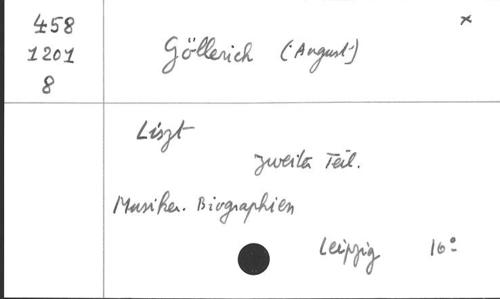 458
1201
8
x
Göllerich (August)
Liszt
zweiter Teil.
Musiker. Biographien
Leipzig 16°